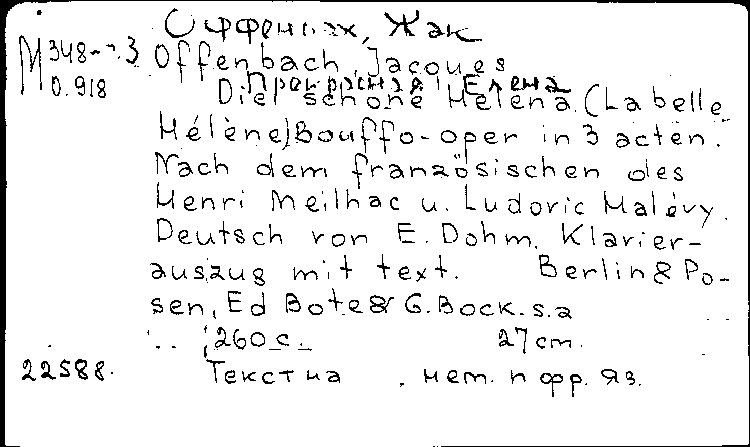 Оффенбах, Жак
M 348-3 Offenbach, Jacques
0.918 Прекрасная Елена
Die schöne Helena (La belle
Hélène) Bouffo-oper in 3 acten.
Nach dem französischen des
Henri Meilhac u. Ludovic Halévy.
Deutsch von E. Dohm. Klavier-
auszug mit text. Berlin & Po-
sen, Ed Bote & G. Bock. s.a
260 c. 27 cm.
22588. Текст на нем. и фр. яз.